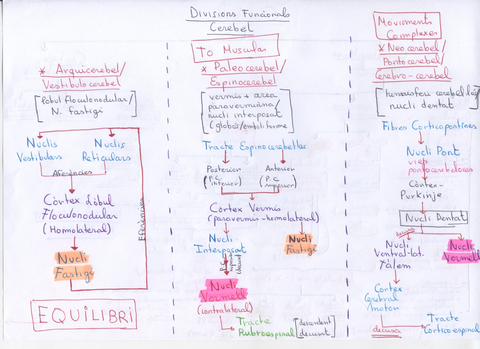 Divisions Funcionals
Cerebel
* Arquicerebel/
Vestibulocerebel
Lòbul Floculonodular/
N. Fastigi
Nuclis
Vestibulars
Nuclis
Reticulars
Aferències
Còrtex Lòbul
Floculonodular
(Homolateral)
Nucli
Fastigi
Eferències
EQUILIBRI
To Muscular
* Paleocerebel/
Espinocerebel
vermis + àrea
paravermiana/
nucli interposat
(globós/emboliforme
Tracte Espinocerebel·lar
Posterior
(P.C.
inferior)
Anterior
(P.C.
superior)
Còrtex Vermis
(paravermis-homolateral)
Nucli
Interposat
Nucli
Fastigi
Nucli
Vermell
(contralateral)
Tracte
Rubroespinal
descendent
decusat
Moviments
Complexes
* Neocerebel/
Pontocerebel/
Cerebro-cerebel
nucli dentat
Fibres Corticopontines
Nucli Pont
vies
pontocerebeloses
Còrtex-
Purkinje
Nucli Dentat
Nucli
Ventral-lat.
Tàlem
Nucli
Vermell
Còrtex
Cerebral
motor
decusa
Tracte
Corticoespinal